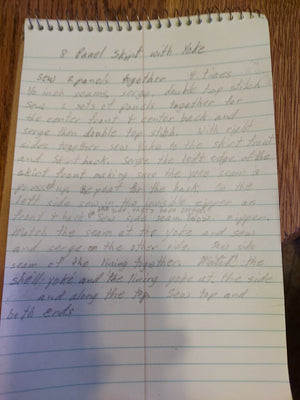 8 Panel Skirt with Yoke
Sew 2 panels together 4 times
½ inch seams, serge, double top stitch
Sew 2 sets of panels together for
the center front & center back and
serge then double top stitch. With right
sides together sew yoke to the skirt front
and skirt back. Serge the left edge of the
skirt front making sure the yoke seam is
pressed up. Repeat for the back. On the
left side sew in the invisible zipper on
front & back on the side that's been serged
Sew seam below zipper.
Match the seam at the yoke and sew
and serge on the other side. Sew side
seam of the lining together. Match the
shell yoke and the lining yoke at the side
and along the top. Sew top and
both ends